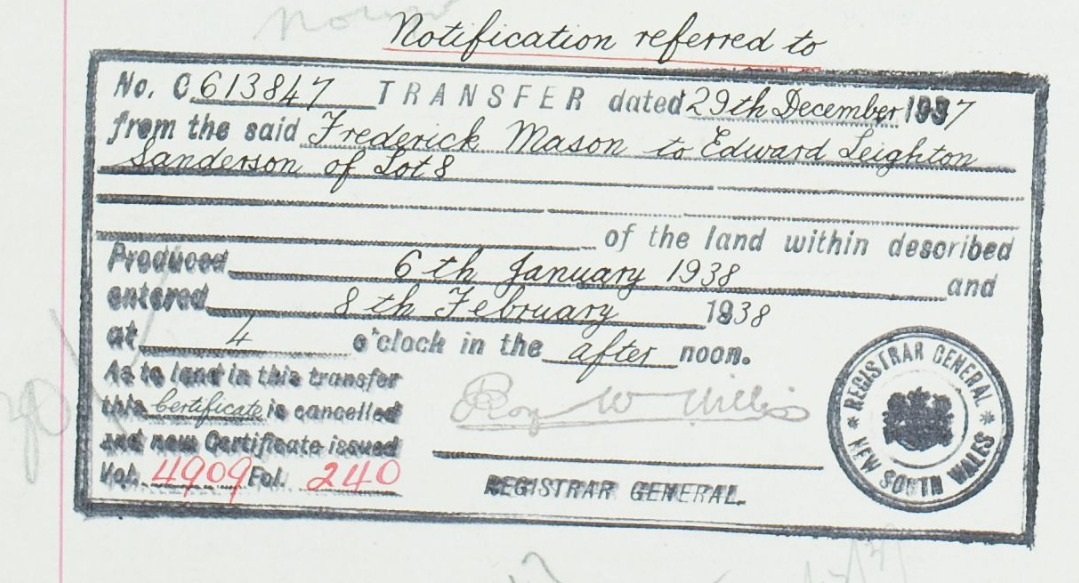 Notification referred to
No. C 613847 TRANSFER dated 29th December 1937
from the said Frederick Mason to Edward Leighton
Sanderson of Lot 8
of the land within described
Produced 6th January 1938 and
entered 8th February 1938
at 4 o'clock in the after noon.
As to land in this transfer
this Certificate is cancelled
and new Certificate issued
Vol. 4909 Fol. 240
Roy W Willis
REGISTRAR GENERAL.
REGISTRAR GENERAL
* NEW SOUTH WALES *